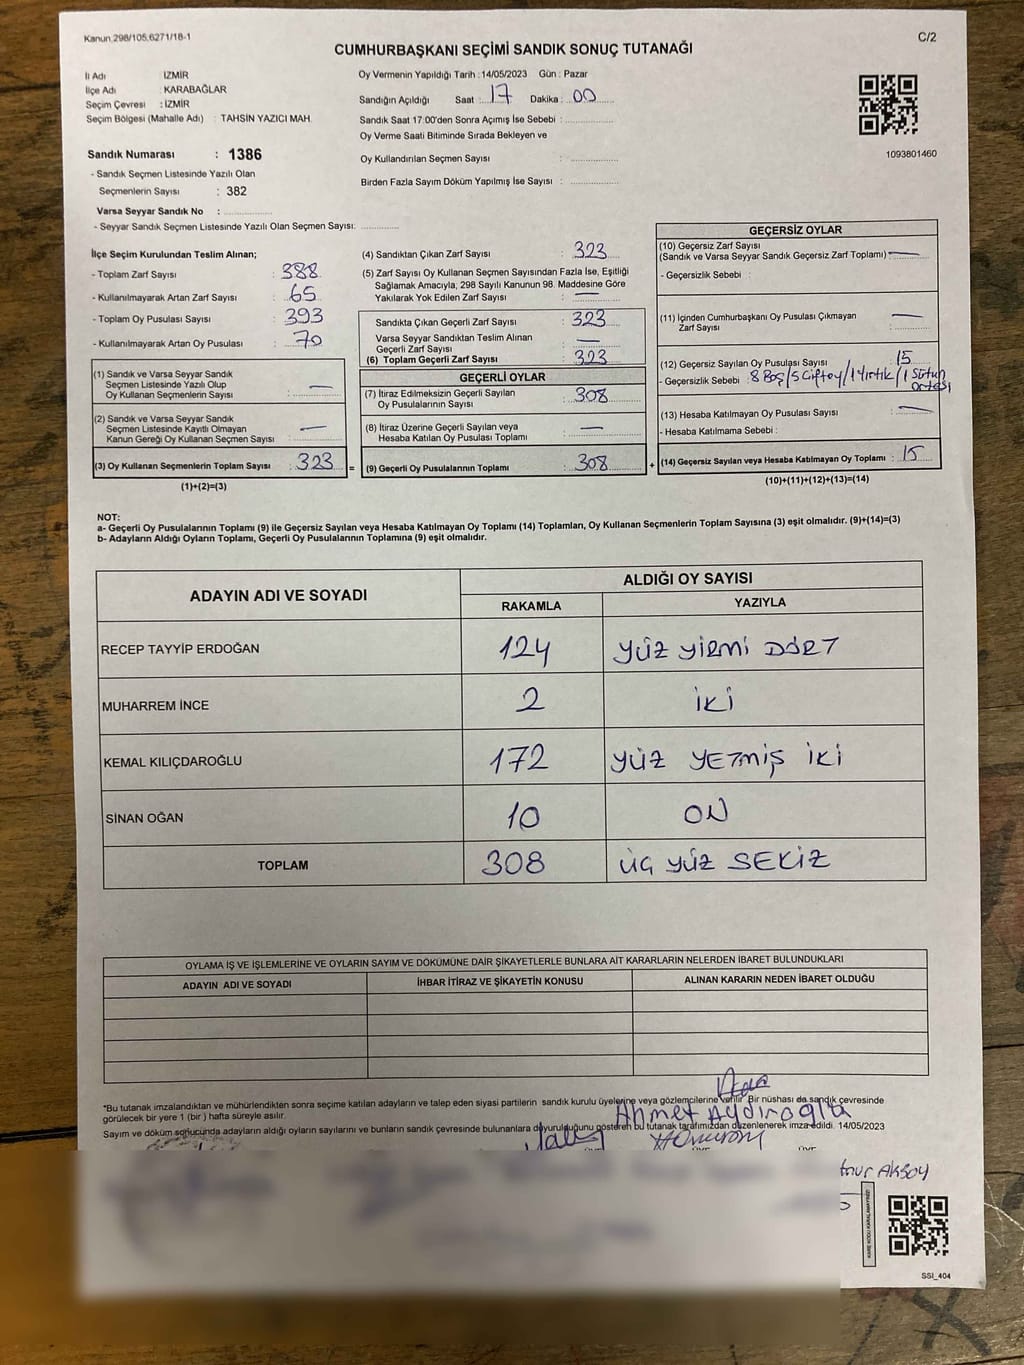 Kanun 298/105,6271/18-1
C/2
CUMHURBAŞKANI SEÇİMİ SANDIK SONUÇ TUTANAĞI
İl Adı : İZMİR
İlçe Adı : KARABAĞLAR
Seçim Çevresi : İZMİR
Seçim Bölgesi (Mahalle Adı) : TAHSİN YAZICI MAH.
Sandık Numarası : 1386
- Sandık Seçmen Listesinde Yazılı Olan
Seçmenlerin Sayısı : 382
Varsa Seyyar Sandık No :
- Seyyar Sandık Seçmen Listesinde Yazılı Olan Seçmen Sayısı:
Oy Vermenin Yapıldığı Tarih :14/05/2023 Gün : Pazar
Sandığın Açıldığı Saat : 17 Dakika : 00
Sandık Saat 17:00'den Sonra Açımış İse Sebebi :
Oy Verme Saati Bitiminde Sırada Bekleyen ve
Oy Kullandırılan Seçmen Sayısı :
Birden Fazla Sayım Döküm Yapılmış İse Sayısı :
1093801460
İlçe Seçim Kurulundan Teslim Alınan;
- Toplam Zarf Sayısı : 388
- Kullanılmayarak Artan Zarf Sayısı : 65
- Toplam Oy Pusulası Sayısı : 393
- Kullanılmayarak Artan Oy Pusulası : 70
(1) Sandık ve Varsa Seyyar Sandık
Seçmen Listesinde Yazılı Olup
Oy Kullanan Seçmenlerin Sayısı : —
(2) Sandık ve Varsa Seyyar Sandık
Seçmen Listesinde Kayıtlı Olmayan
Kanun Gereği Oy Kullanan Seçmen Sayısı : —
(3) Oy Kullanan Seçmenlerin Toplam Sayısı : 323 =
(1)+(2)=(3)
(4) Sandıktan Çıkan Zarf Sayısı : 323
(5) Zarf Sayısı Oy Kullanan Seçmen Sayısından Fazla İse, Eşitliği
Sağlamak Amacıyla, 298 Sayılı Kanunun 98. Maddesine Göre
Yakılarak Yok Edilen Zarf Sayısı : —
Sandıkta Çıkan Geçerli Zarf Sayısı : 323
Varsa Seyyar Sandıktan Teslim Alınan
Geçerli Zarf Sayısı : —
(6) Toplam Geçerli Zarf Sayısı : 323
GEÇERLİ OYLAR
(7) İtiraz Edilmeksizin Geçerli Sayılan
Oy Pusulalarının Sayısı : 308
(8) İtiraz Üzerine Geçerli Sayılan veya
Hesaba Katılan Oy Pusulası Toplamı : —
(9) Geçerli Oy Pusulalarının Toplamı : 308 +
GEÇERSİZ OYLAR
(10) Geçersiz Zarf Sayısı
(Sandık ve Varsa Seyyar Sandık Geçersiz Zarf Toplamı) : —
- Geçersizlik Sebebi :
(11) İçinden Cumhurbaşkanı Oy Pusulası Çıkmayan
Zarf Sayısı : —
(12) Geçersiz Sayılan Oy Pusulası Sayısı : 15
- Geçersizlik Sebebi : 8 Boş/5 Çift oy/1 Yırtık/1 Sütun
ortası
(13) Hesaba Katılmayan Oy Pusulası Sayısı : —
- Hesaba Katılmama Sebebi :
(14) Geçersiz Sayılan veya Hesaba Katılmayan Oy Toplamı : 15
(10)+(11)+(12)+(13)=(14)
NOT:
a- Geçerli Oy Pusulalarının Toplamı (9) ile Geçersiz Sayılan veya Hesaba Katılmayan Oy Toplamı (14) Toplamları, Oy Kullanan Seçmenlerin Toplam Sayısına (3) eşit olmalıdır. (9)+(14)=(3)
b- Adayların Aldığı Oyların Toplamı, Geçerli Oy Pusulalarının Toplamına (9) eşit olmalıdır.
ADAYIN ADI VE SOYADI
ALDIĞI OY SAYISI
RAKAMLA YAZIYLA
RECEP TAYYİP ERDOĞAN 124 YÜZ YİRMİ DÖRT
MUHARREM İNCE 2 İKİ
KEMAL KILIÇDAROĞLU 172 YÜZ YETMİŞ İKİ
SİNAN OĞAN 10 ON
TOPLAM 308 ÜÇ YÜZ SEKİZ
OYLAMA İŞ VE İŞLEMLERİNE VE OYLARIN SAYIM VE DÖKÜMÜNE DAİR ŞİKAYETLERLE BUNLARA AİT KARARLARIN NELERDEN İBARET BULUNDUKLARI
ADAYIN ADI VE SOYADI İHBAR İTİRAZ VE ŞİKAYETİN KONUSU ALINAN KARARIN NEDEN İBARET OLDUĞU
*Bu tutanak imzalandıktan ve mühürlendikten sonra seçime katılan adayların ve talep eden siyasi partilerin sandık kurulu üyelerine veya gözlemcilerine verilir. Bir nüshası da sandık çevresinde
görülecek bir yere 1 (bir) hafta süreyle asılır.
Ahmet Aydıroğlu
Sayım ve döküm sonucunda adayların aldığı oyların sayılarını ve bunların sandık çevresinde bulunanlara duyurulduğunu gösteren bu tutanak tarafımızdan düzenlenerek imza edildi. 14/05/2023
AKSOY
SSI_404